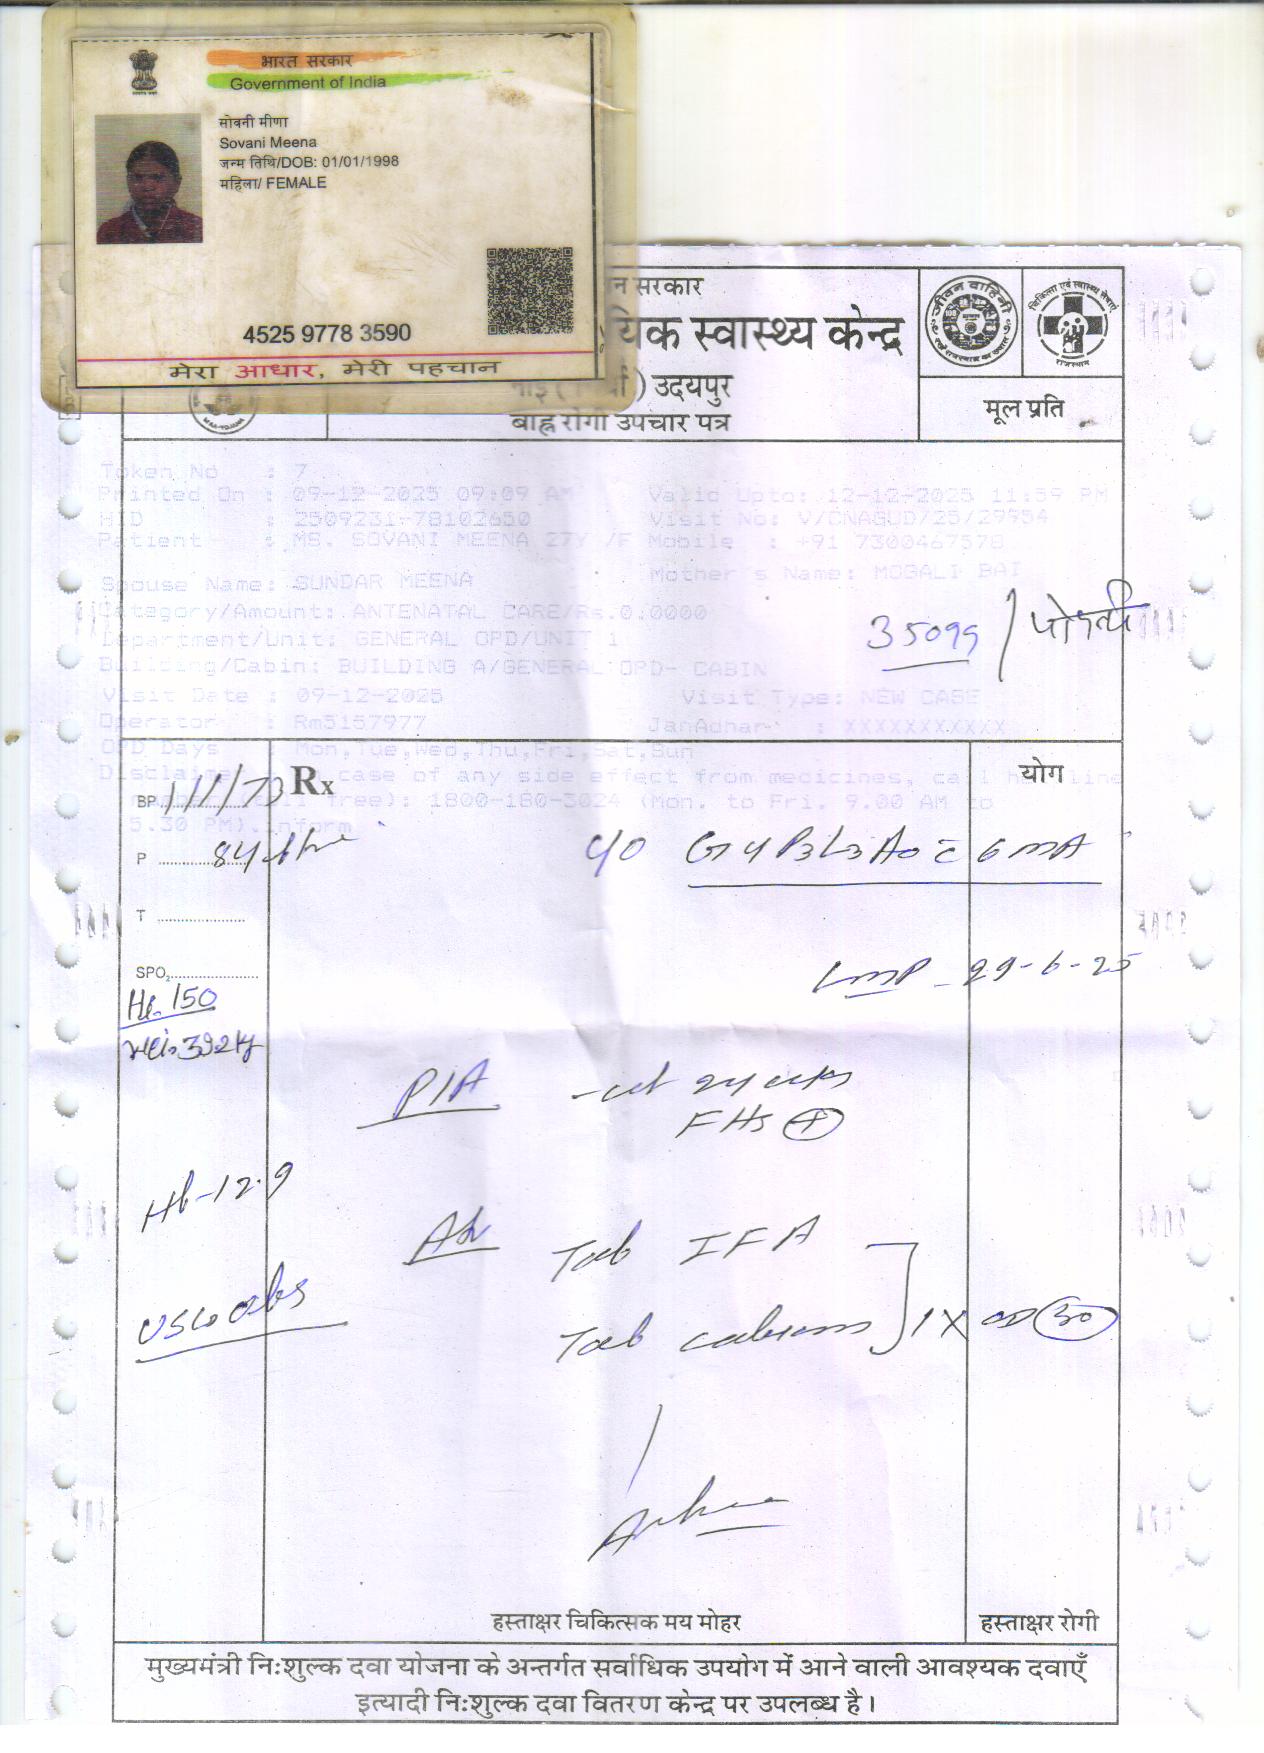 भारत सरकार
Government of India
सोवनी मीणा
Sovani Meena
जन्म तिथि/DOB: 01/01/1998
महिला/ FEMALE
4525 9778 3590
मेरा आधार, मेरी पहचान
न सरकार
यिक स्वास्थ्य केन्द्र
जीवन वाहिनी
चिकित्सा एवं स्वास्थ्य सेवाएं
राजस्थान
) उदयपुर
बाह्य रोगी उपचार पत्र
मूल प्रति
Token No : 7
Printed On : 09-12-2025 09:09 AM Valid Upto: 12-12-2025 11:59 PM
HID : 2509231-78102650 Visit No: V/CNAGUD/25/29954
Patient : MS. SOVANI MEENA 27Y /F Mobile : +91 7300467578
Spouse Name: SUNDAR MEENA Mother's Name: MOGALI BAI
Category/Amount: ANTENATAL CARE/Rs.0.0000
35099
Department/Unit: GENERAL OPD/UNIT 1
Building/Cabin: BUILDING A/GENERAL OPD- CABIN
Visit Date : 09-12-2025 Visit Type: NEW CASE
Operator : Rm5157977 JanAdhar : XXXXXXXXXXX
OPD Days : Mon,Tue,Wed,Thu,Fri,Sat,Sun
Disclaime case of any side effect from medicines, call h line
free): 1800-180-3024 (Mon. to Fri. 9.00 AM to
5.30 PM).inform
Rx
योग
BP 111/73
P 84 b/m
C/O G4P3L3A0 c̄ 6 MA
T
SPO2
LMP - 29-6-25
Ht. 150
wt. 39.2 kg
P/A - ut 24 wks
FHS +
Hb-12.9
Adv Tab IFA
Tab calcium ] 1 X OD 30
USG obs
हस्ताक्षर चिकित्सक मय मोहर
हस्ताक्षर रोगी
मुख्यमंत्री नि:शुल्क दवा योजना के अन्तर्गत सर्वाधिक उपयोग में आने वाली आवश्यक दवाएँ
इत्यादी नि:शुल्क दवा वितरण केन्द्र पर उपलब्ध है।